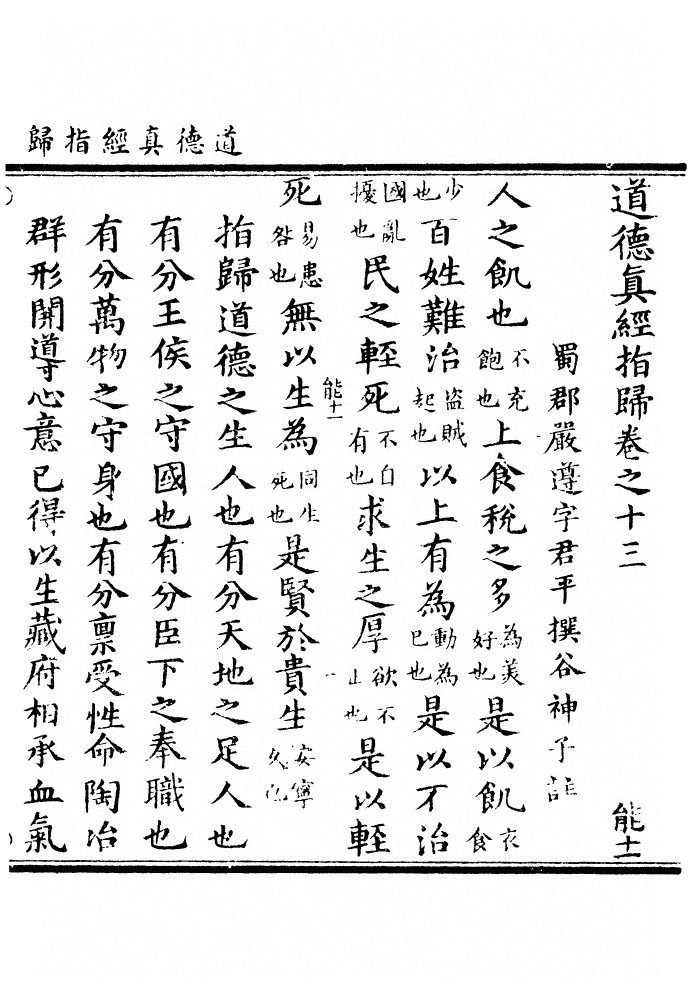 道德真經指歸
道德眞經指歸卷之十三 能十一
蜀郡嚴遵字君平撰谷神子註
人之飢也不充飽也上食稅之多為美好也是以飢衣食
少也百姓難治盜賊起也以上有為動為巳也是以不治
國亂擾也民之輕死不自有也求生之厚欲不止也是以輕
死易患咎也無以生為同生死也是賢於貴生安寧久也
能十一
指歸道德之生人也有分天地之足人也
有分王侯之守國也有分臣下之奉職也
有分萬物之守身也有分稟受性命陶冶
群形開導心意已得以生藏府相承血氣